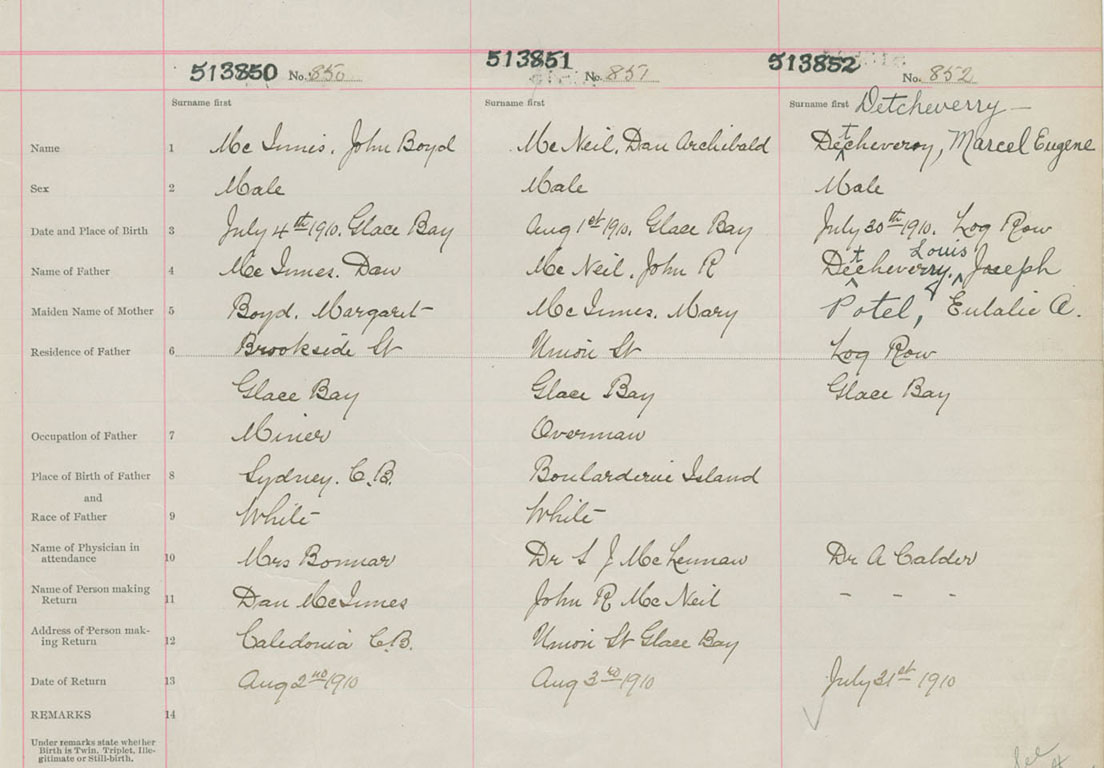 513850 No. 850 513851 No. 851 513852 No. 852
Surname first Surname first Surname first Detcheverry —
Name 1 Mc Innis, John Boyd Mc Neil, Dan Archibald Detcheverry, Marcel Eugene
Sex 2 Male Male Male
Date and Place of Birth 3 July 4th 1910. Glace Bay Aug 1st 1910, Glace Bay July 30th 1910. Log Row
Louis
Name of Father 4 Mc Innes. Dan Mc Neil, John R Detcheverry, Joseph
Maiden Name of Mother 5 Boyd. Margaret Mc Innes. Mary Potel, Eulalie A.
Residence of Father 6 Brookside St Union St Log Row
Glace Bay Glace Bay Glace Bay
Occupation of Father 7 Miner Overman
Place of Birth of Father 8 Sydney. C.B. Boularderie Island
and
Race of Father 9 White White
Name of Physician in
attendance 10 Mrs Bonnar Dr S J McLennan Dr A Calder
Name of Person making
Return 11 Dan McInnes John R McNeil - - -
Address of Person mak-
ing Return 12 Caledonia C.B. Union St Glace Bay
Date of Return 13 Aug 2nd 1910 Aug 3rd 1910 July 31st 1910
REMARKS 14
Under remarks state whether
Birth is Twin, Triplet, Ille-
gitimate or Still-birth.